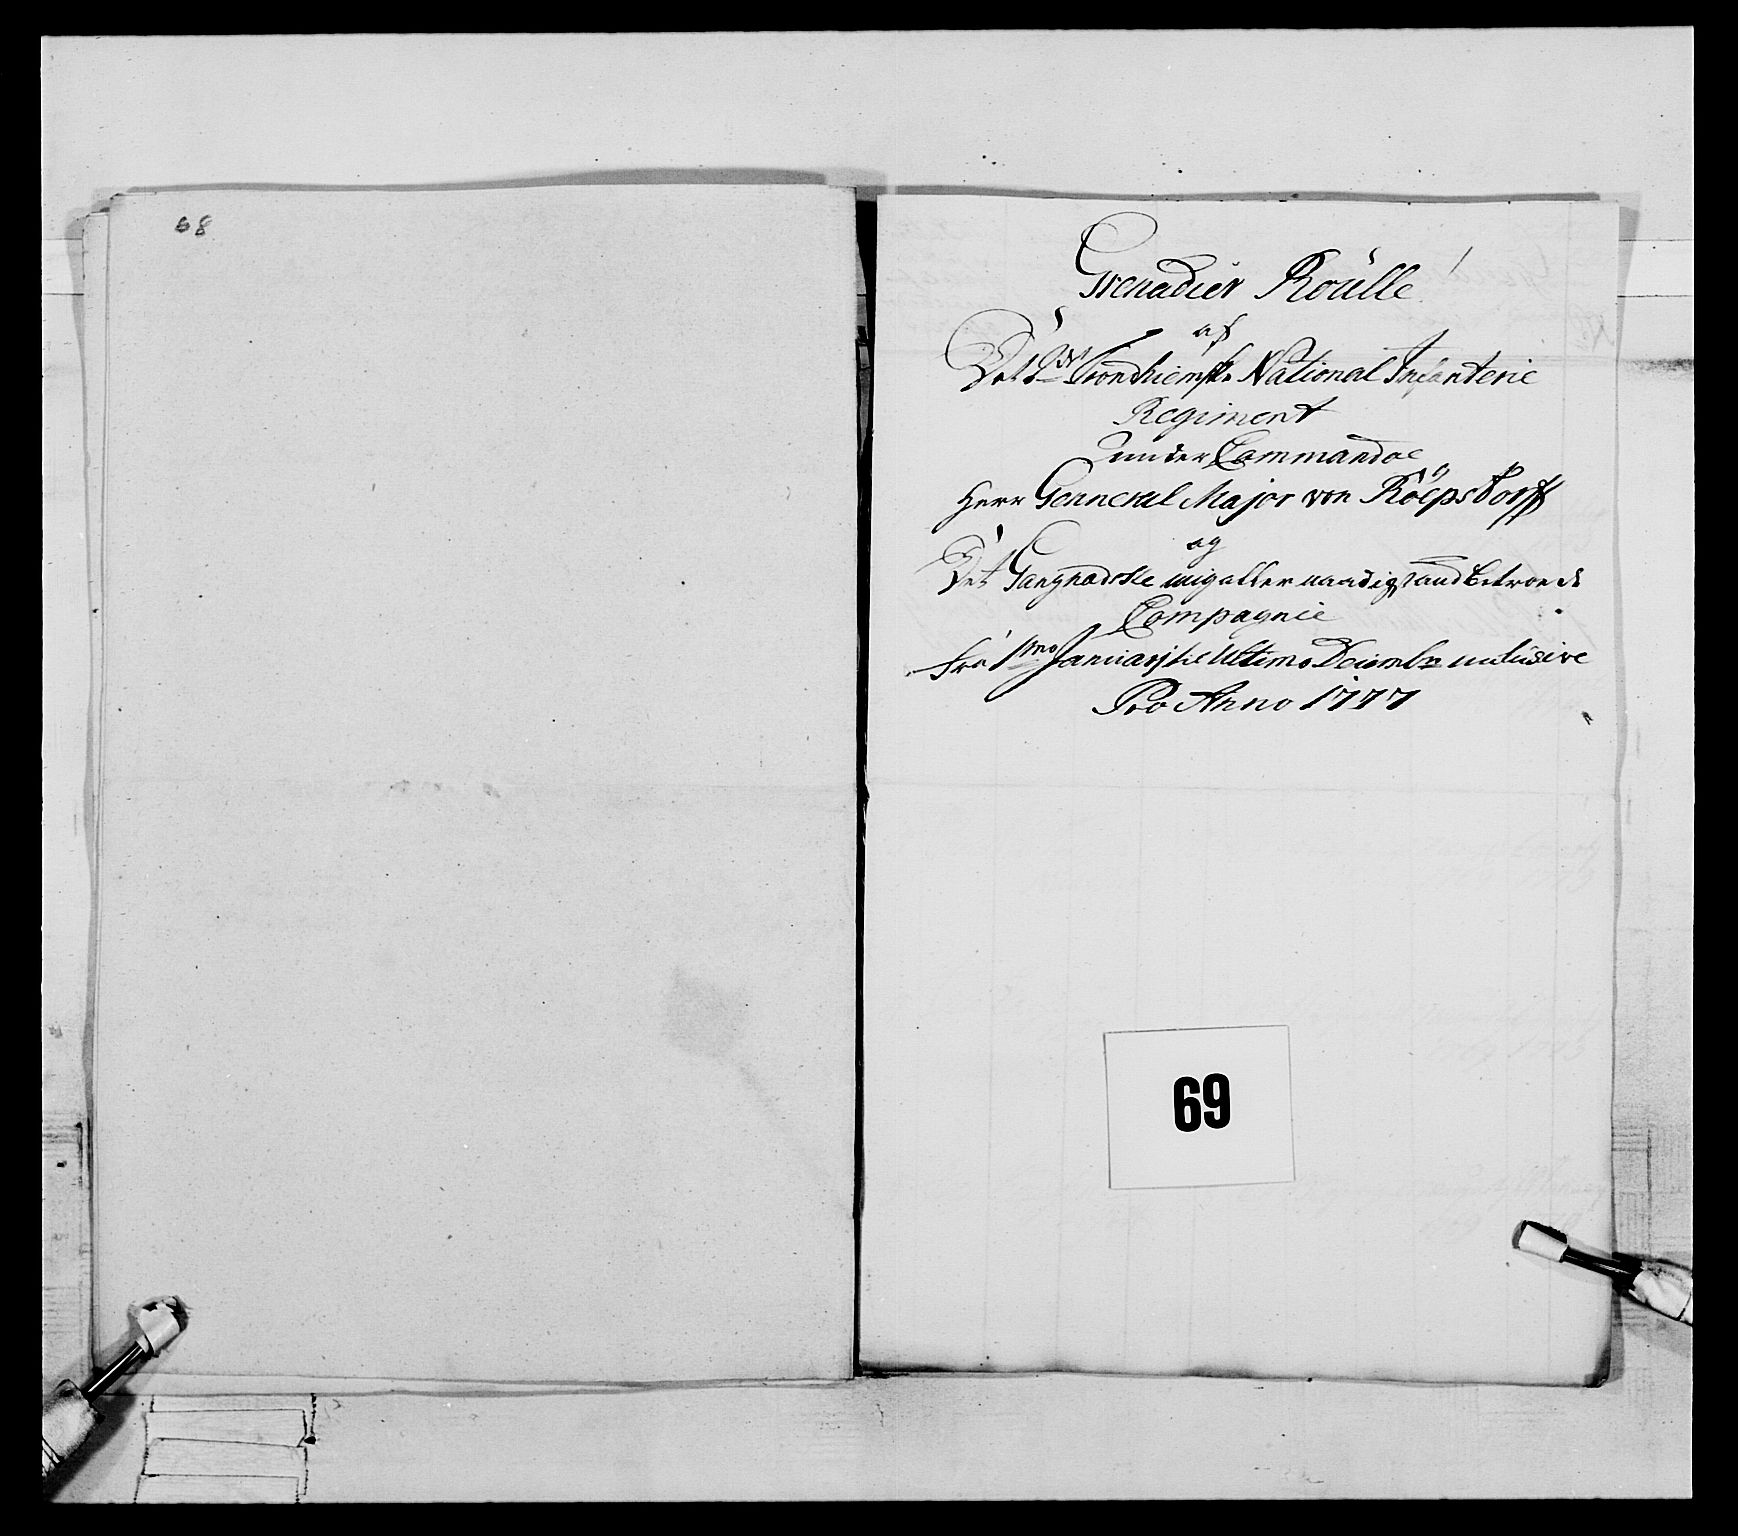 68
Grenadier Roülle
af
Det 2det Trondhiemske National Infanterie
Regiment
under Commandoe
Herr Genneral Major von Röepstorff
og
Det mig allernaadigst anbetroede
Compagnie
fra 1mo Januarj til Ultimo Decembr inclusive
Pro Anno 1777
69